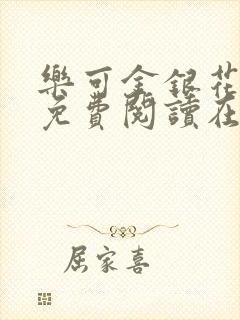 樂可金銀花
免費閱讀在
屈家喜